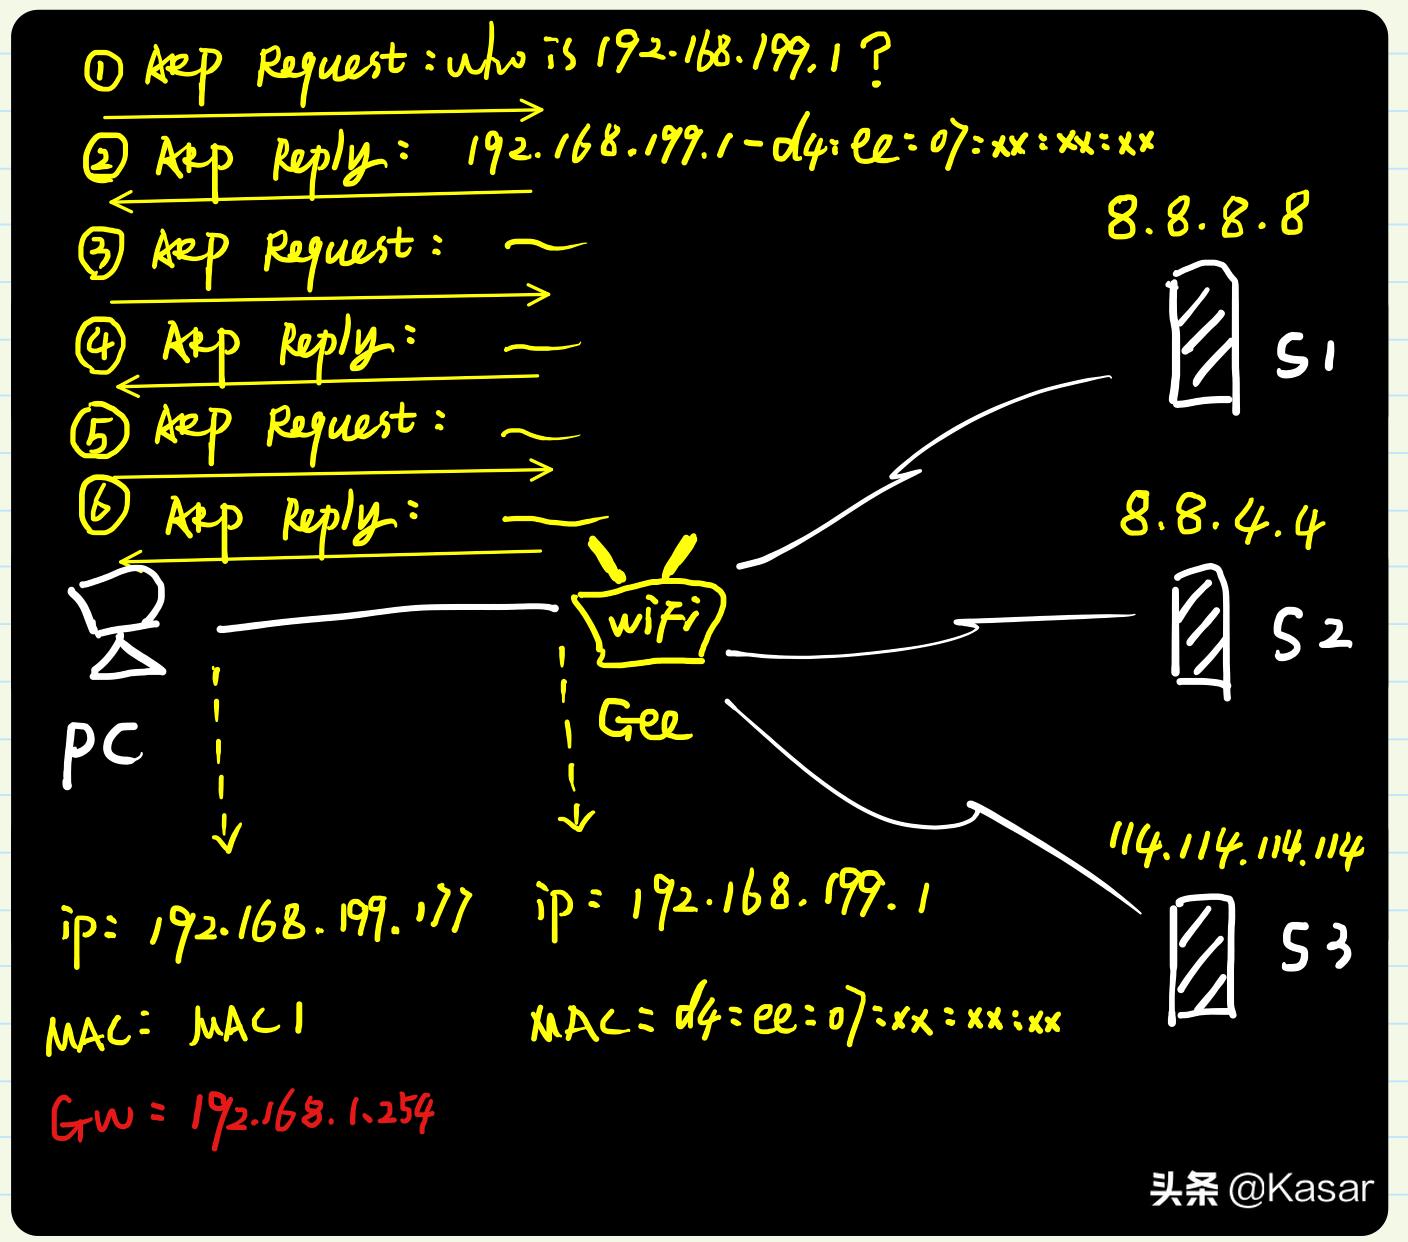 ① ARP Request: who is 192.168.199.1?
② ARP Reply: 192.168.199.1-d4:ee:07:xx:xx:xx
③ ARP Request:
④ ARP Reply:
⑤ ARP Request:
⑥ ARP Reply:
8.8.8.8
S1
8.8.4.4
S2
WiFi
Gee
PC
114.114.114.114
S3
ip= 192.168.199.177
ip= 192.168.199.1
MAC= MAC1
MAC= d4:ee:07:xx:xx:xx
GW = 192.168.1.254
头条 @Kasar